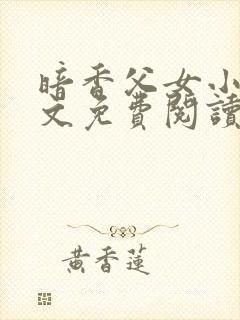 暗香父女小
文免費閱讀
黃香蓮